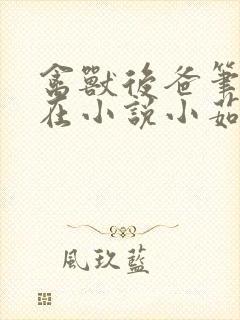 禽獸後爸筆
在小說小茹
風玖藍